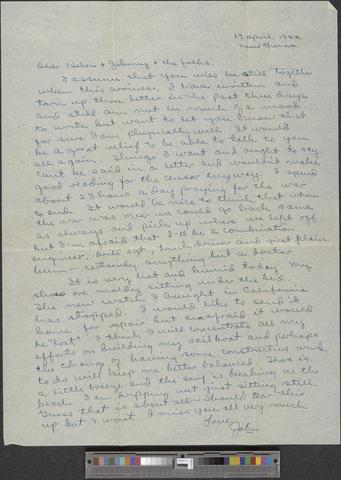 17 april, 1944
New Guinea
Dear Helen & Johnny & the folks,
I assume that you will be still together
when this arrives. I have written and
torn up three letters in the past three days
and still am not in much of a mood
to write but want to let you know that
for sure I am physically well. It would
be a great relief to be able to talk to you
all again. Things I want and ought to say
can't be said in a letter and wouldn't make
good reading for the censor anyway. I spend
about 23 hours a day praying for the war
to end. It would be nice to think that when
the war was over we could go back same
as always and pick up where we left off
but I'm afraid that I'll be a combination
engineer, drill sgt., truck driver and just plain
bum — certainly anything but a doctor.
It is very hot and humid today. My
shoes are moldy sitting under the bed.
The new watch I bought in California
has stopped. I would like to send it
home for repair but am afraid it would
be "lost". I think I will concentrate all my
efforts on building my sail boat and perhaps
the change of having some constructive work
to do will keep me better balanced. There is
a little breeze and the surf is breaking on the
beach. I am dripping wet just sitting still.
Guess that is about all — Should tear this
up but I won't. I miss you all very much
Love,
John